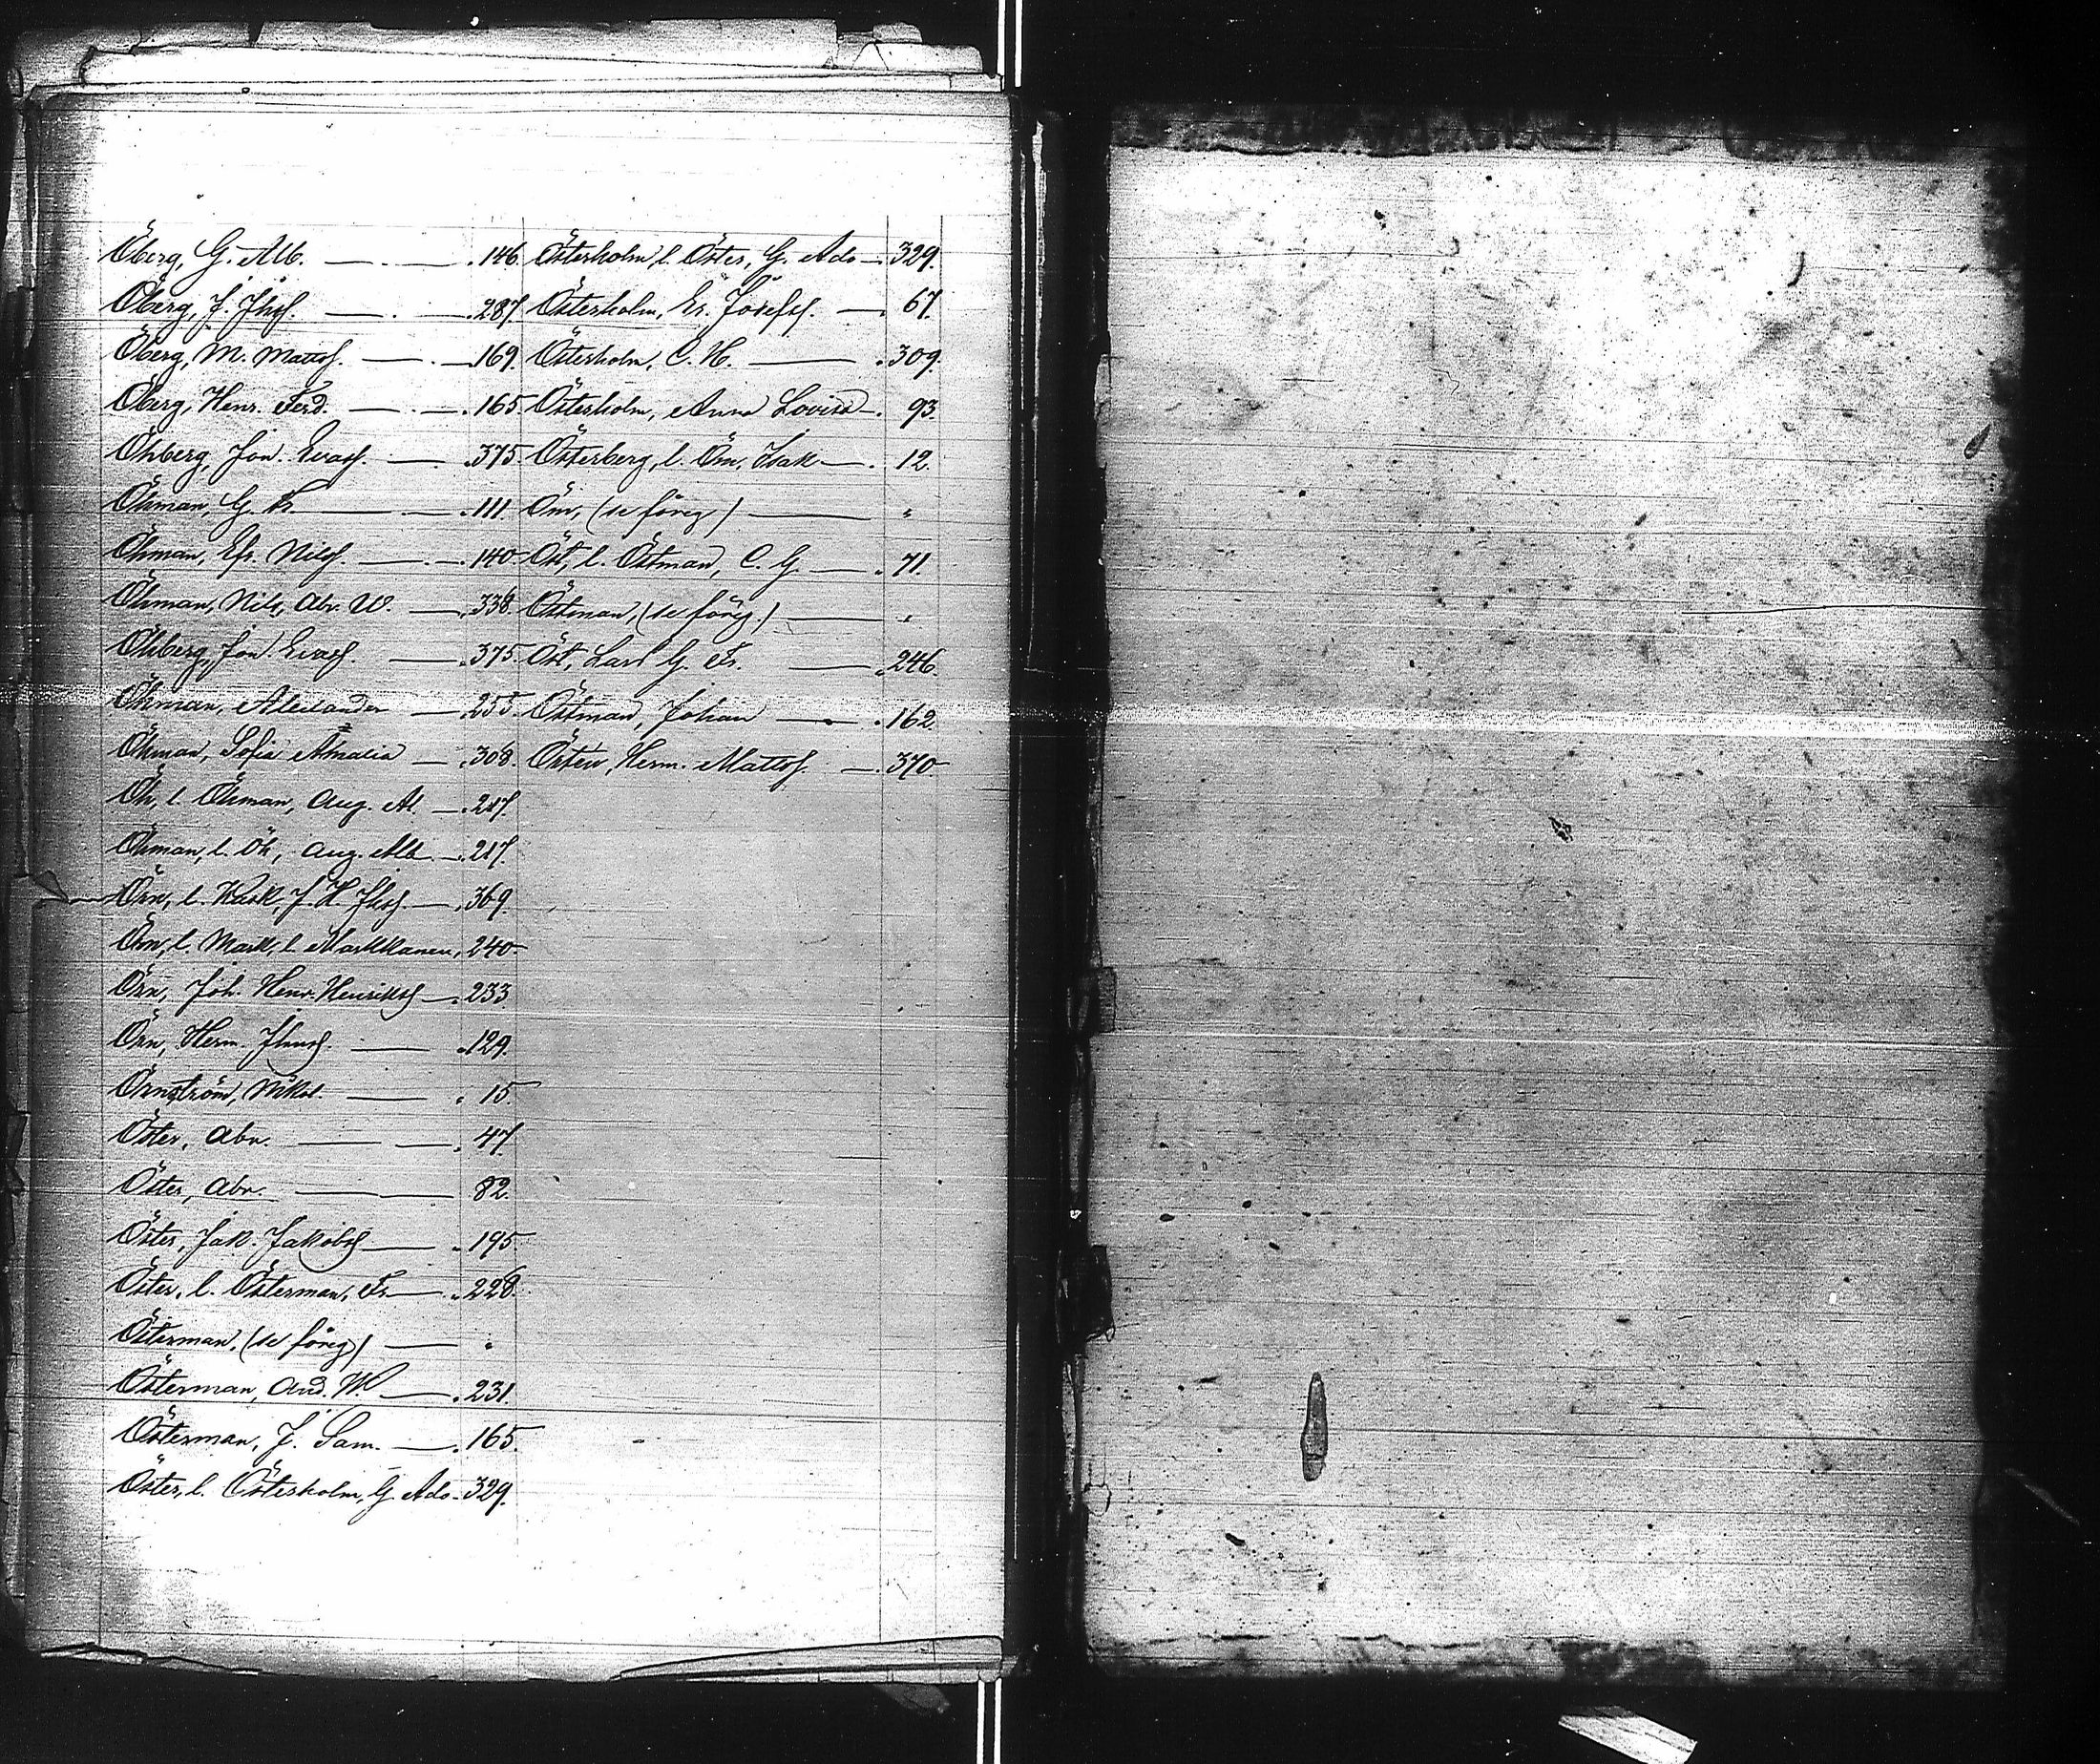 Öberg, G. Alb. — . — . 146.
Öberg, J. Jhsf. — . — . 287.
Öberg, M. Mattsf. — . — 169.
Öberg, Henr. Ferd. — . — . 165.
Öhberg, Jon. Evasf. — . 375.
Öhman, G. Fr. — . 111.
Öhman, Efr. Nilsf. — . — . 140.
Öhman, Nils, Abr. W. — . 338.
Öhberg, Jon Evasf. — . 375.
Öhman, Alexander — 255.
Öhman, Sofia Amalia — . 308.
Öh, l. Öhman, Aug. Al. — . 217.
Öhman, l. Öh, Aug. Alb. — . 217.
Örn, l. Kask, J. H. Jhsf. — . 369.
Örn, l. Mark, l. Markkanen, 240.
Örn, Joh. Henr. Henriksf — . 233
Örn, Herm. Jhnsf. — . 129.
Örnström, Nikol. — . 15.
Öster, Abr. — — . 47.
Öster, Abr. — — 82.
Öster, Jak. Jakobsf — . 195.
Öster, l. Österman, Fr. — . 228.
Österman, (se föreg) — "
Österman, And. W — . 231.
Österman, J. Sam. — . 165.
Öster, l. Österholm, G. Ado. 329.
Österholm, l. Öster, G. Ado — . 329.
Österholm, Er. Josefsf. — . 67.
Österholm, C. H. — . 309.
Österholm, Anna Lovisa — . 93.
Österberg, l. Öm, Isak — . 12.
Öm, (se föreg) — "
Öst, l. Östman, C. G — . 71.
Östman, (se föreg.) — "
Öst, Lars G. Fr. — . 246.
Östman, Johan — . 162.
Östen, Herm. Mattsf. — . 370.